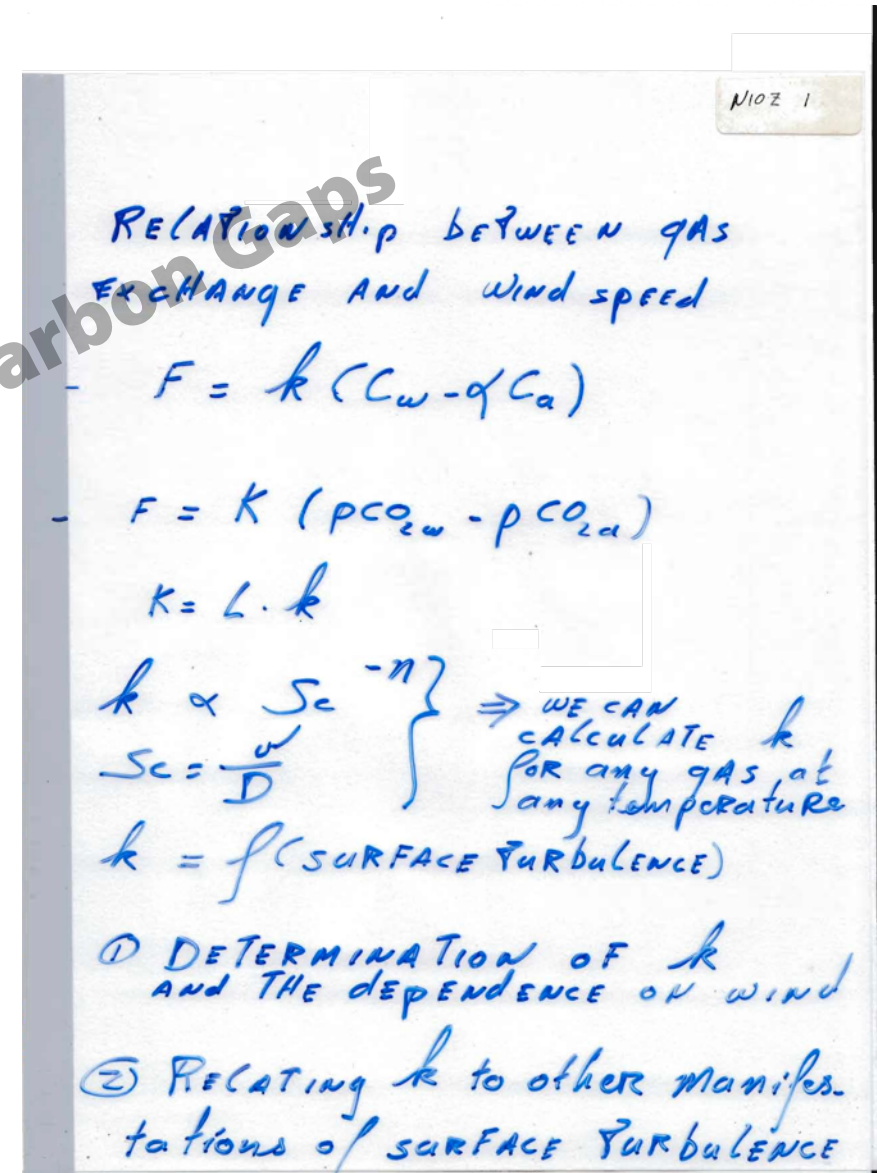 NIOZ 1
arbon Gaps
RELATIONSHIP between gAS
EXCHANGE AND WIND SPEED
- F = k (Cw - αCa)
- F = K (pCO2w - pCO2a)
K = L · k
k ∝ Sc^-n } ⇒ WE CAN
CALCULATE k
Sc = ν/D
FOR any gAS, at
any temperature
k = f(SURFACE TURBULENCE)
① DETERMINATION OF k
AND THE dEpENdENCE ON WINd
② RELATING k to other manifes-
tations of SURFACE TURBULENCE